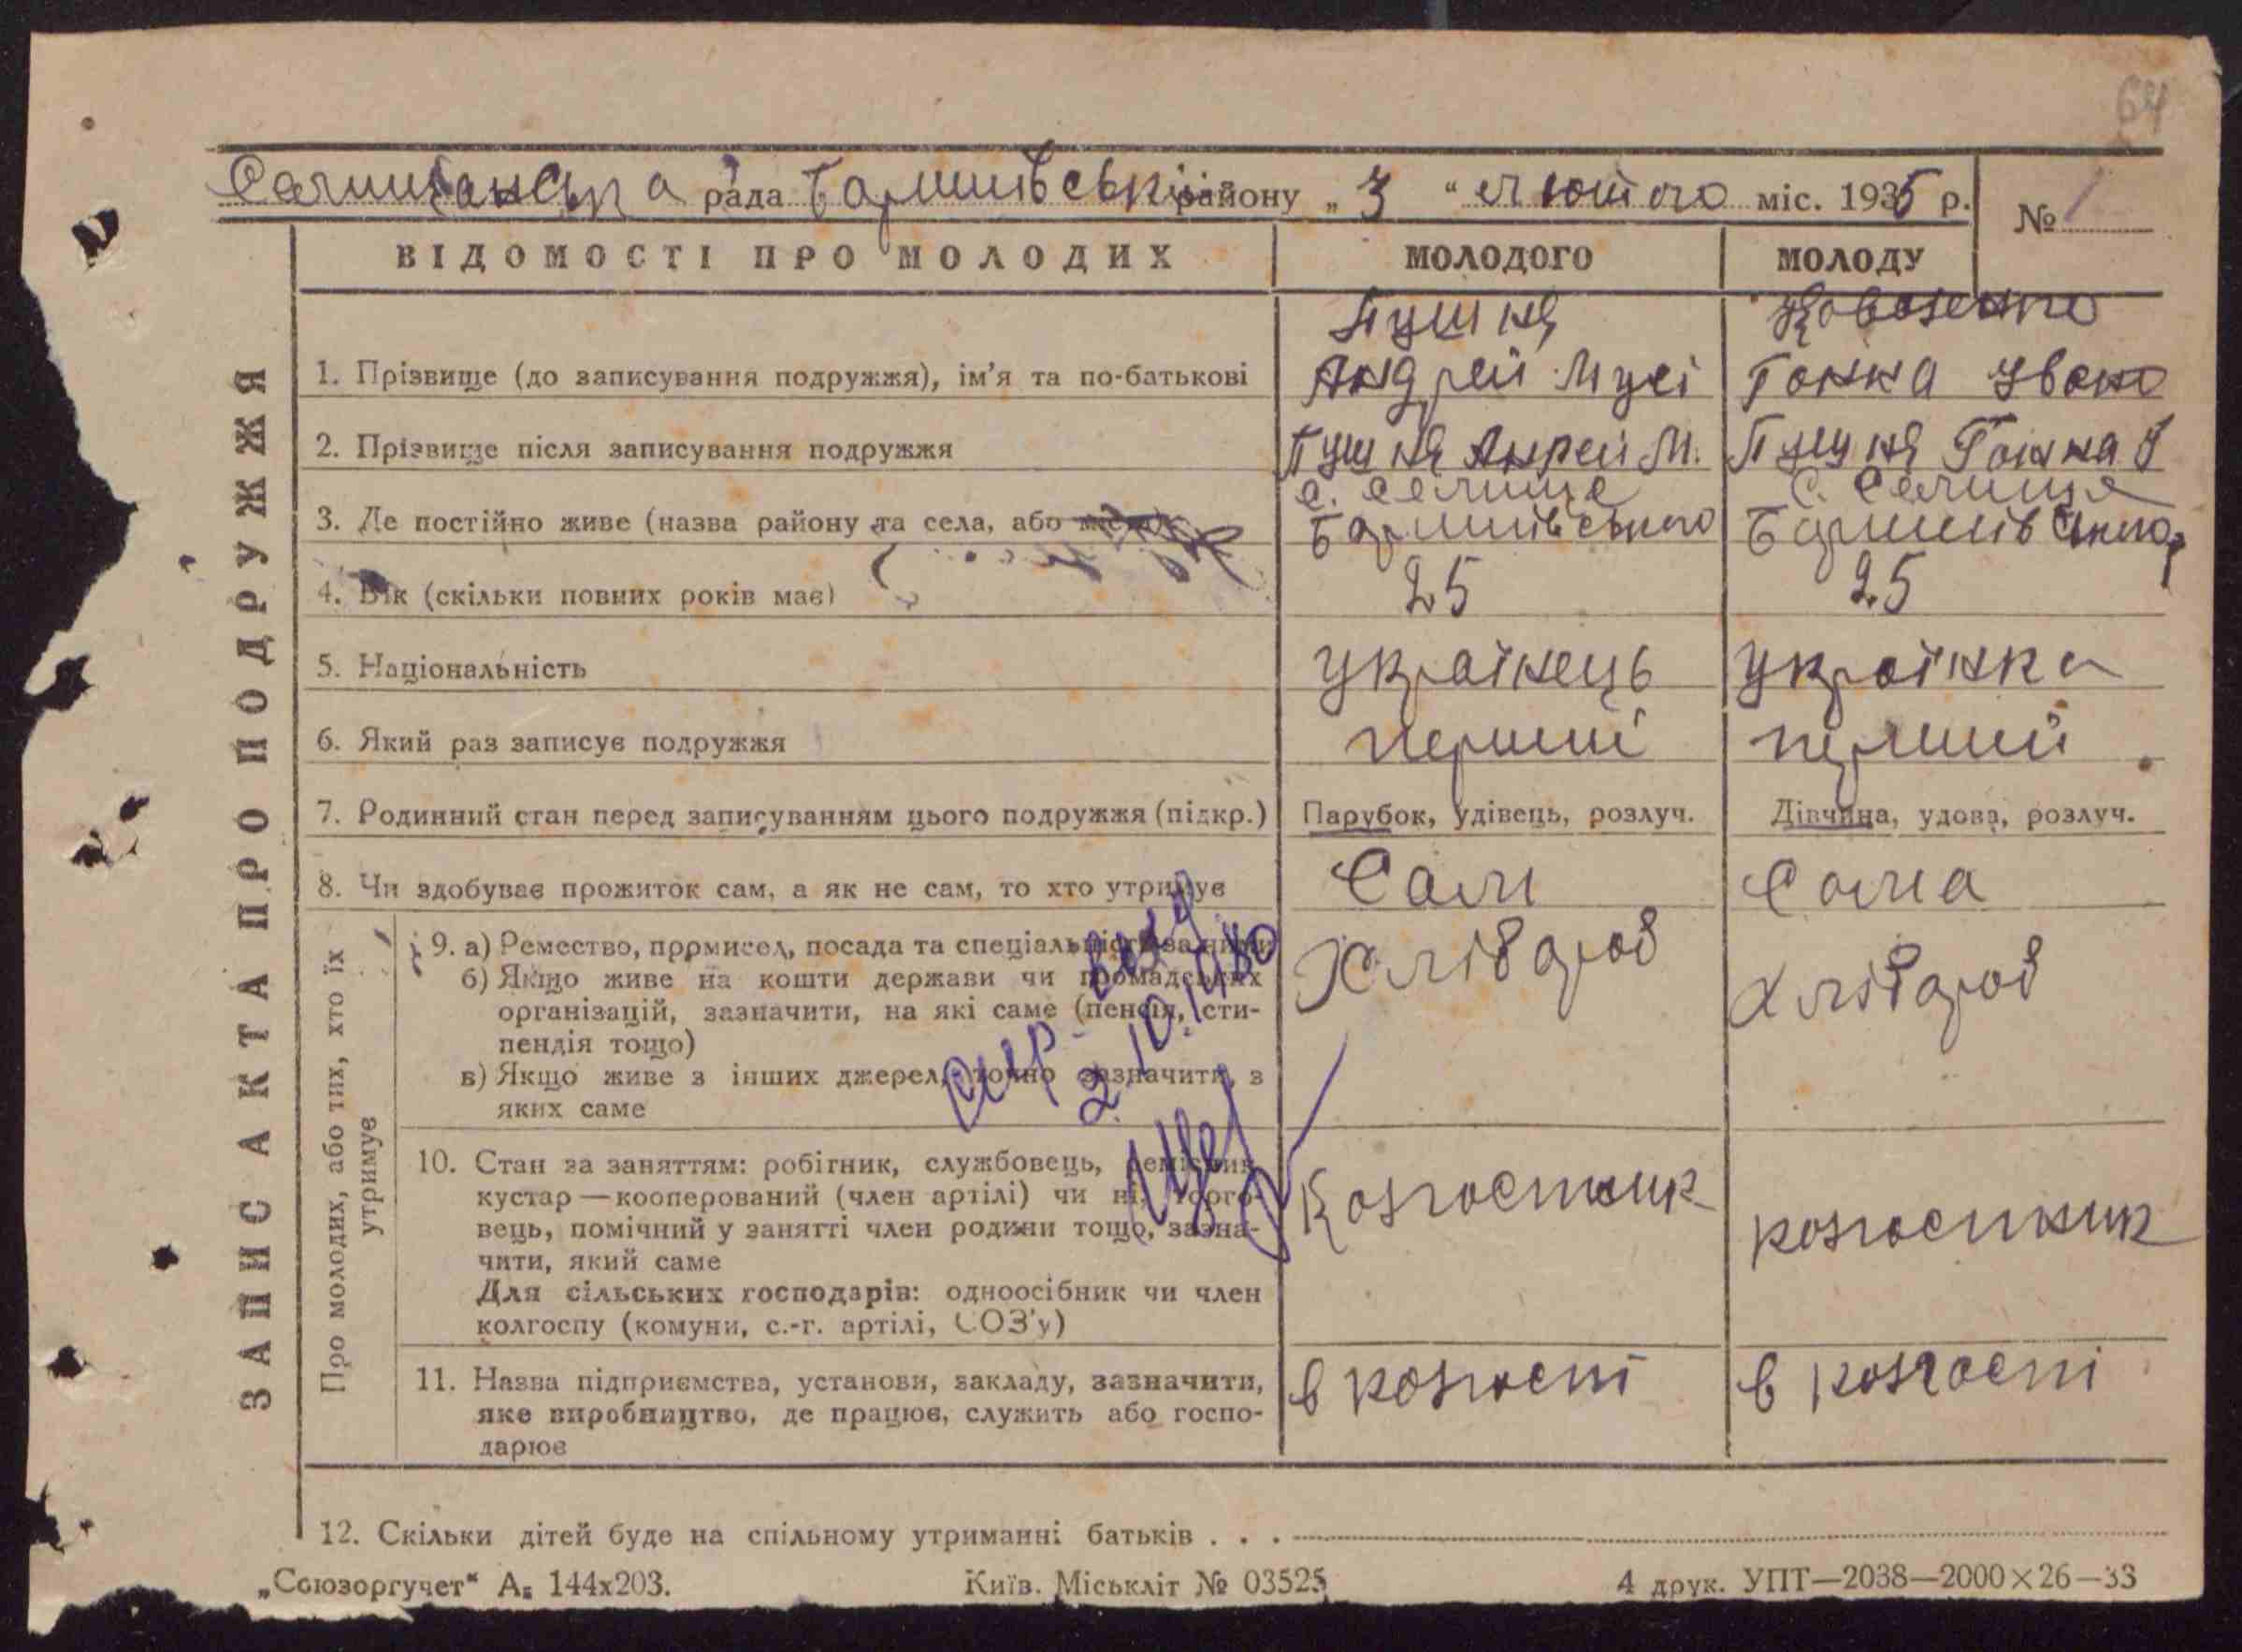 64
Селищанська рада Баришівський району „ 3 “ лютого міс. 1935 р. № 1
ВІДОМОСТІ ПРО МОЛОДИХ МОЛОДОГО МОЛОДУ
ЗАПИС АКТА ПРО ПОДРУЖЖЯ
Пушня
1. Прізвище (до записування подружжя), ім’я та по-батькові Андрей Мусі Ганна Івано
2. Прізвище після записування подружжя Пушня Анрей М. Пушня Ганна І
с. Селище с. Селище
3. Де постійно живе (назва району та села, або міста) Баришівського Баришівського
4. Вік (скільки повних років має) 25 25
5. Національність українець українка
6. Який раз записує подружжя перший перший
7. Родинний стан перед записуванням цього подружжя (підкр.) Парубок, удівець, розлуч. Дівчина, удова, розлуч.
8. Чи здобуває прожиток сам, а як не сам, то хто утримує Сам Сама
Про молодих, або тих, хто їх утримує
9. а) Ремество, промисел, посада та спеціальність за ними Хлібароб Хлібароб
б) Якщо живе на кошти держави чи громадських
організацій, зазначити, на які саме (пенсія, сти-
пендія тощо)
в) Якщо живе з інших джерел, точно зазначити, з
яких саме
2.10.1980
10. Стан за заняттям: робітник, службовець, ремісник Колгостник колгостник
кустар — кооперований (член артілі) чи ні, торго-
вець, помічний у занятті член родини тощо, зазна-
чити, який саме
Для сільських господарів: одноосібник чи член
колгоспу (комуни, с.-г. артілі, СОЗ’у)
11. Назва підприємства, установи, закладу, зазначити, в колгоспі в колгоспі
яке виробництво, де працює, служить або госпо-
дарює
12. Скільки дітей буде на спільному утриманні батьків . . .
„Союзоргучет“ А₅ 144х203. Київ. Міськліт № 03525 4 друк. УПТ—2038—2000×26—33